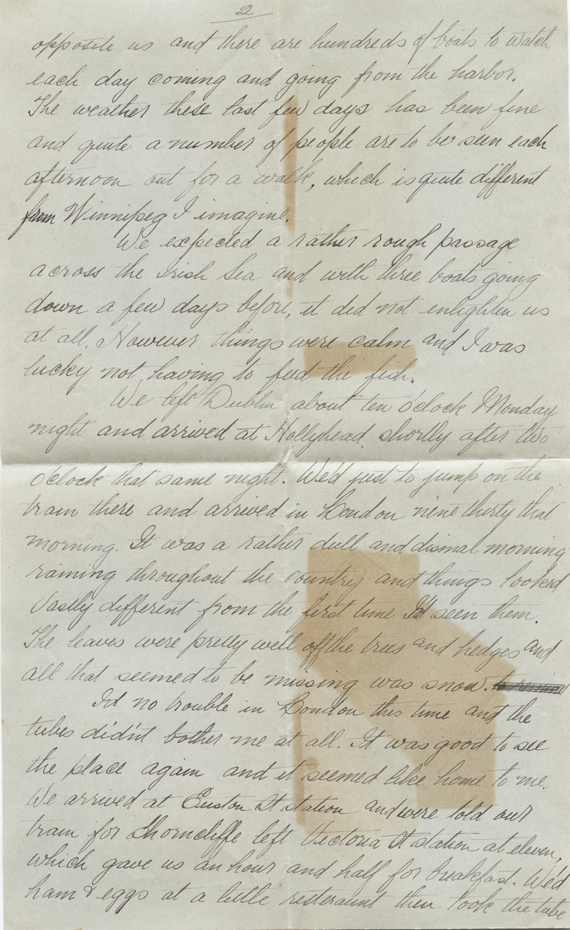 2
opposite us and there are hundreds of boats to watch
each day coming and going from the harbor.
The weather these last few days has been fine
and quite a number of people are to be seen each
afternoon out for a walk, which is quite different
from Winnipeg I imagine.
We expected a rather rough passage
across the Irish Sea and with three boats going
down a few days before, it did not enlighten us
at all. However things were calm and I was
lucky not having to feed the fish.
We left Dublin about ten o'clock Monday
night and arrived at Hollyhead shortly after two
o'clock that same night. We'd just to jump on the
train there and arrived in London nine thirty that
morning. It was a rather dull and dismal morning
raining throughout the country and things looked
vastly different from the first time I'd seen them.
The leaves were pretty well off the trees and hedges and
all that seemed to be missing was snow.
I'd no trouble in London this time and the
tubes didn't bother me at all. It was good to see
the place again and it seemed like home to me.
We arrived at Euston St station and were told our
train for Shorncliffe left Victoria St station at eleven,
which gave us an hour and half for breakfast. We'd
ham & eggs at a little resteraunt then took the tube